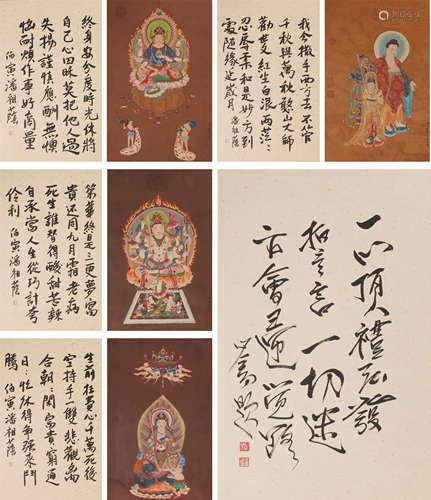 終身安分度時光休將
自己心田昧莫把他人過
失揚謹慎應酬無懊
惱耐煩作事好商量
伯寅潘祖蔭
我今撒手西方去不管
千秋與萬秋憨山大師
勸世紅塵白浪兩茫:
忍辱柔和是妙方到
處隨緣延歲月
潘祖蔭
榮華終是三更夢富
貴還同九月霜老病
死生誰替得酸甜苦辣
自承當人生從巧計誇
伶利 伯寅潘祖蔭
生前枉費心千萬死後
空持手一雙悲歡離
合朝:鬧富貴窮通
日:忙休得爭強來鬥
騰 伯寅潘祖蔭
一心頂禮弘發
言一切迷
會正道覺路
題